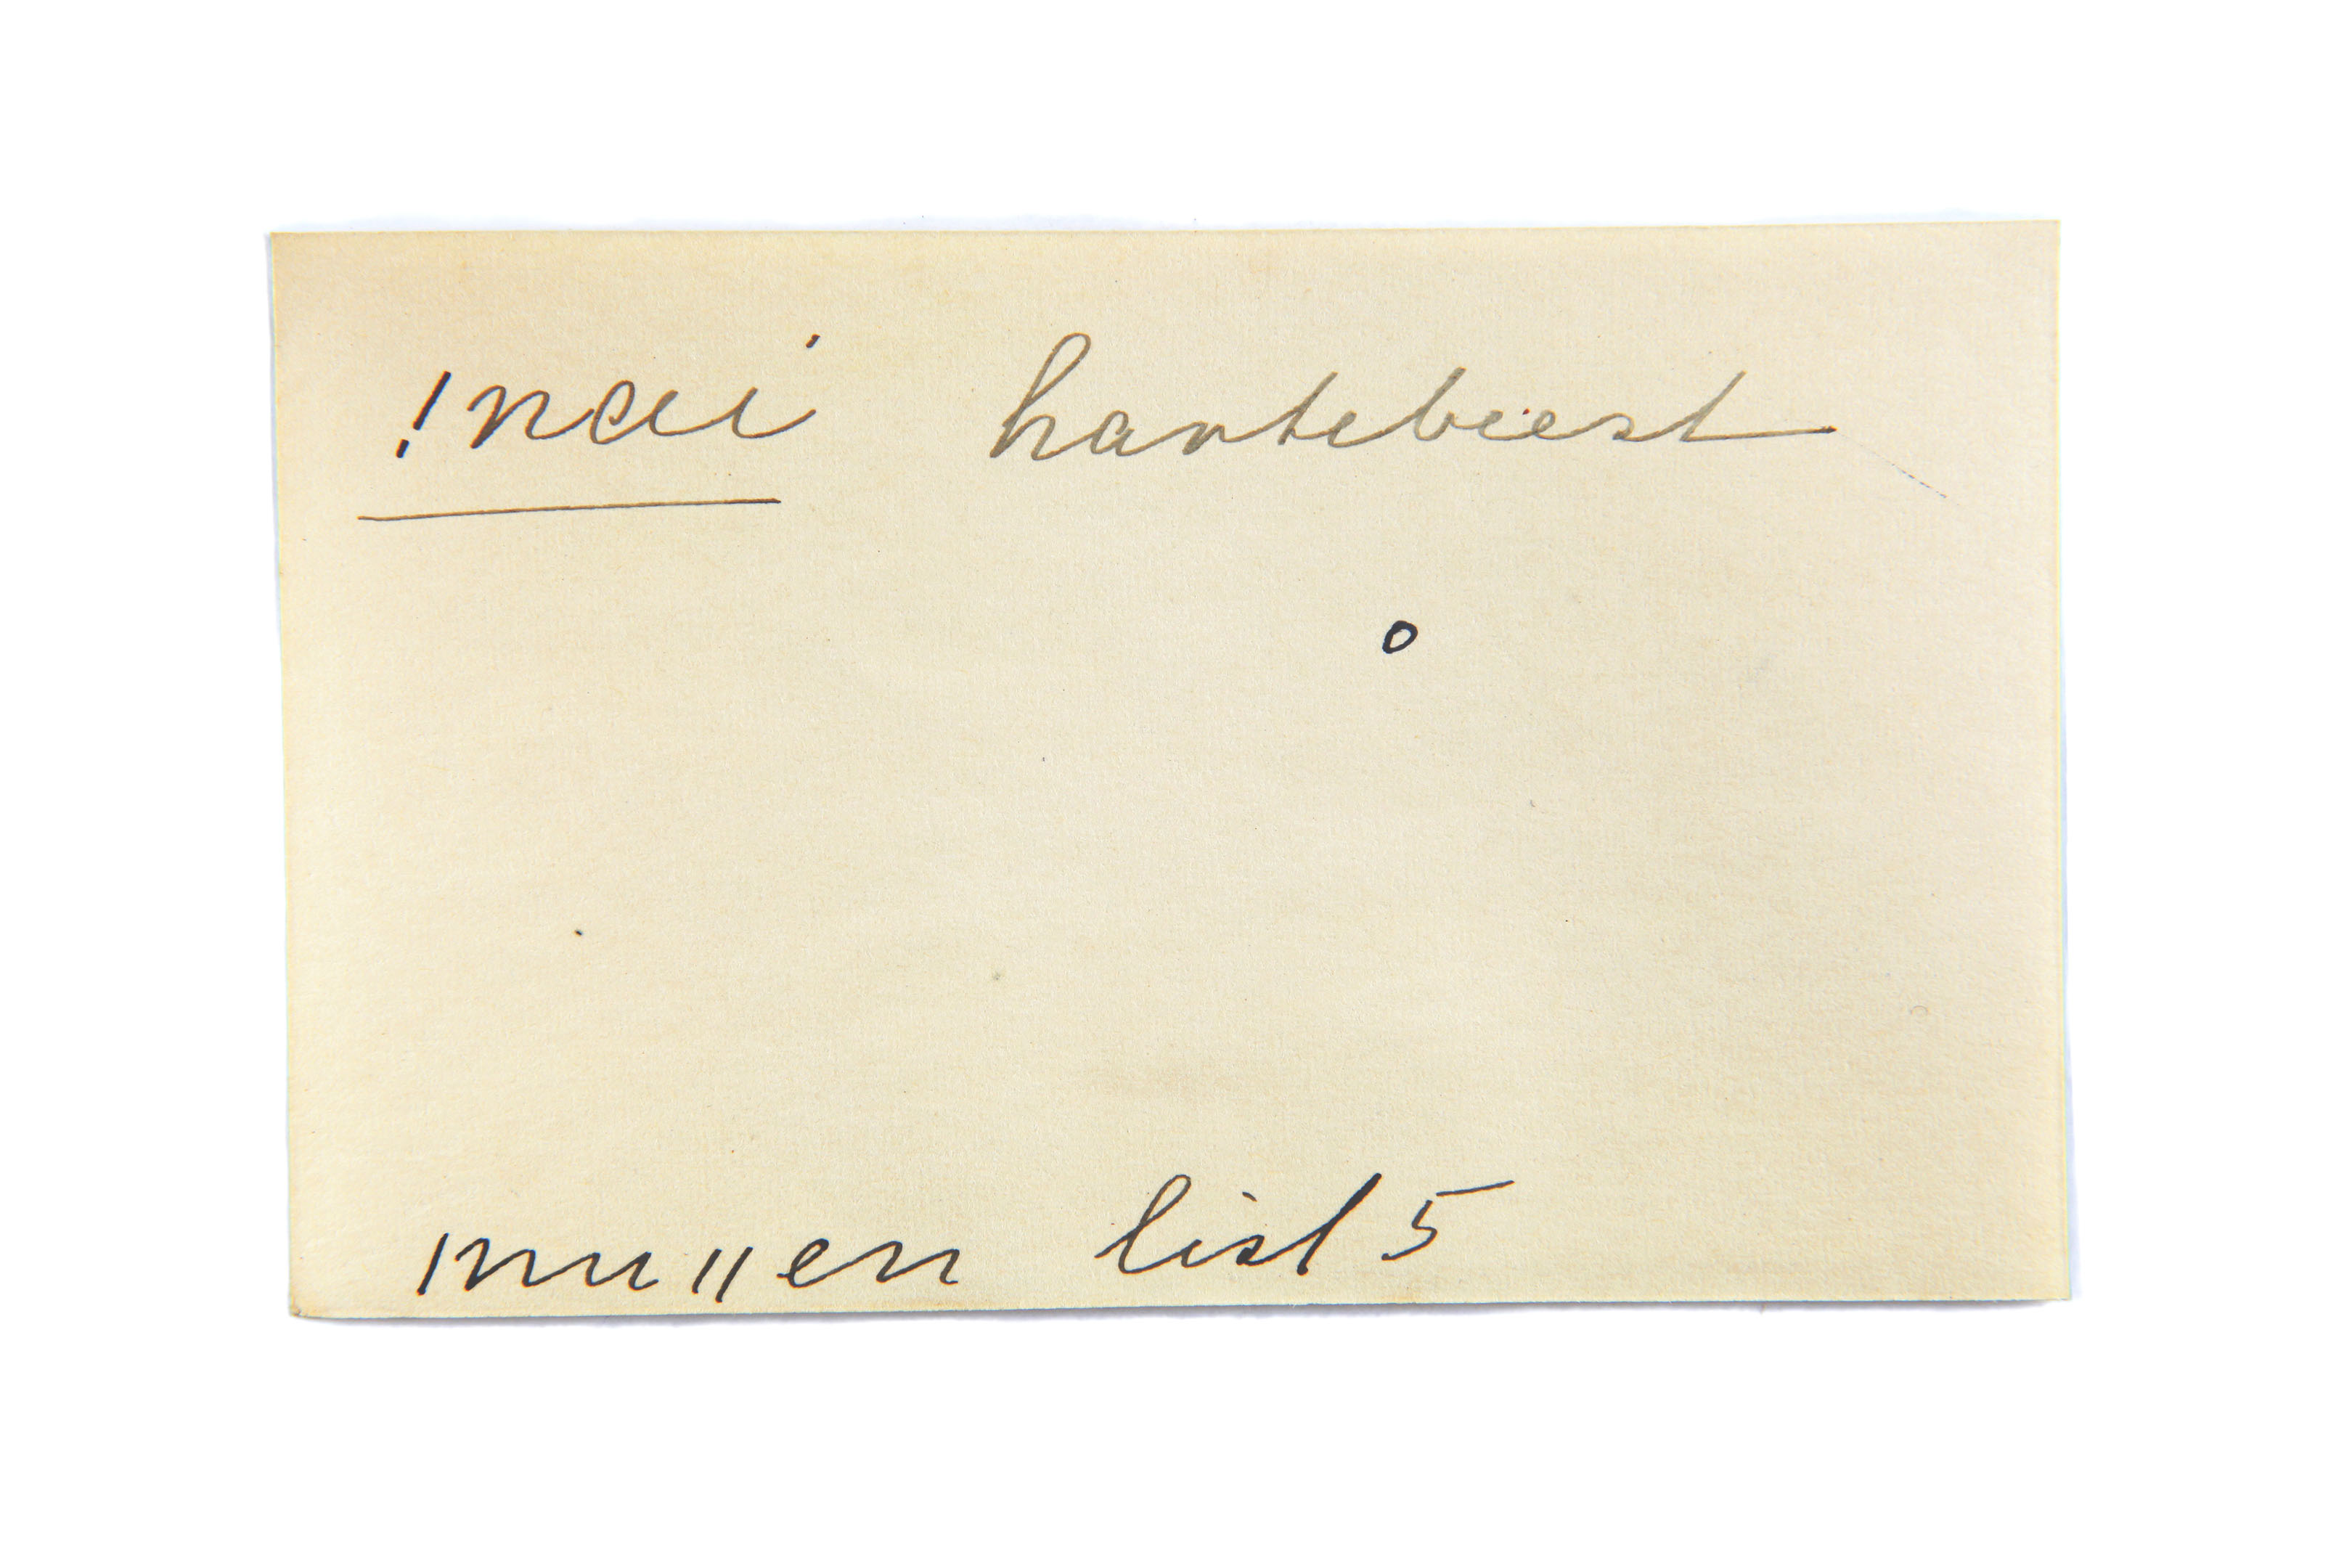 !nai hartebeest
o
|nu||en list 5